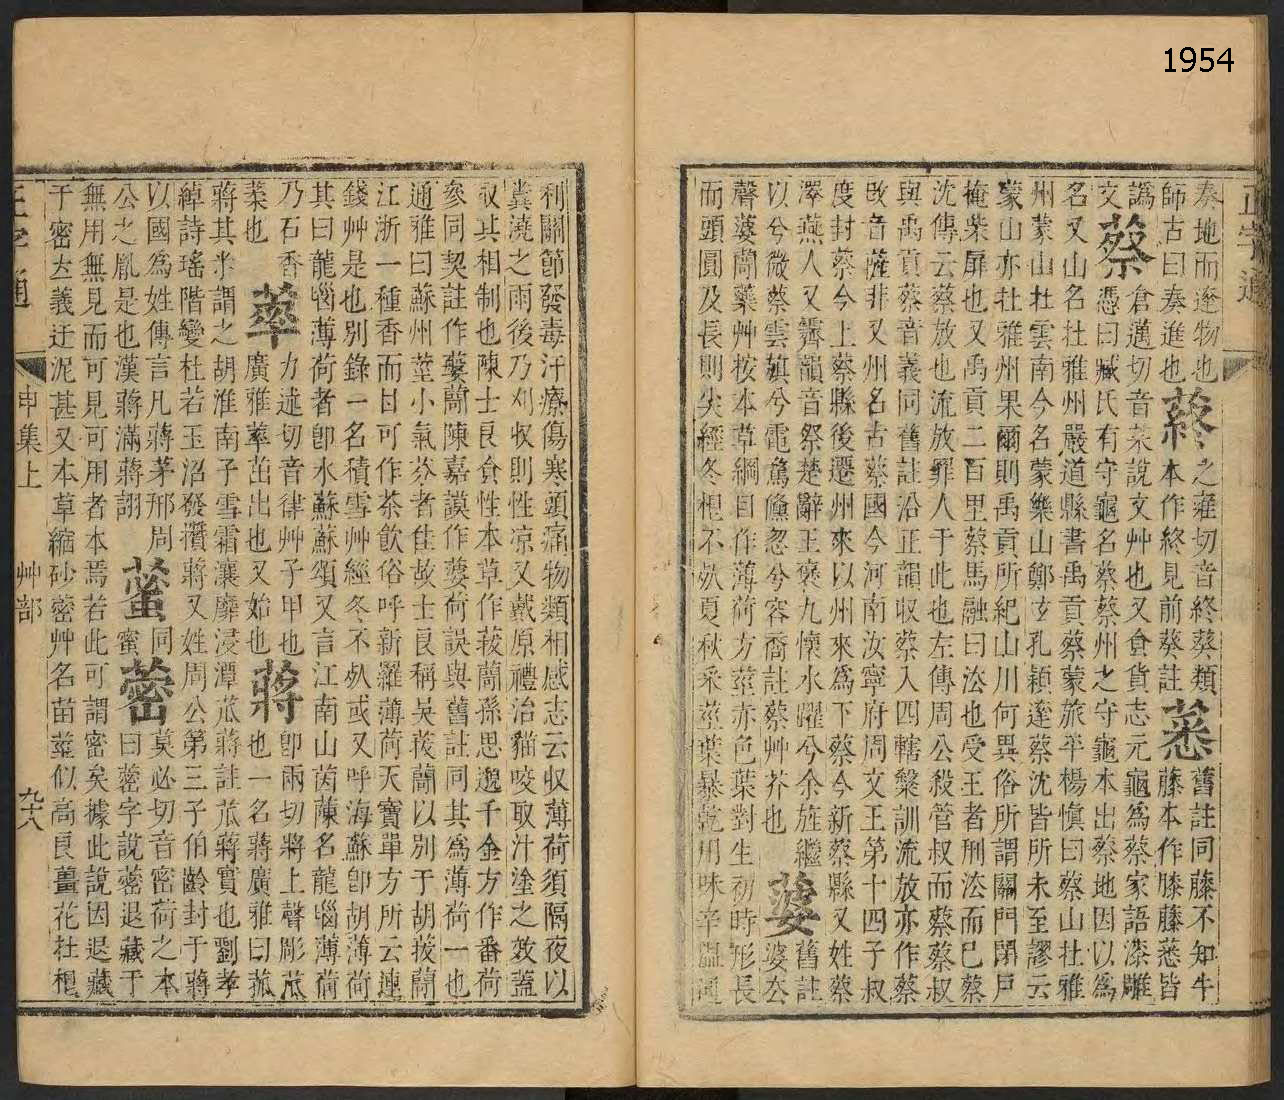 正字通
奏地而遂物也
師古曰奏進也
蔠
之雍切音終葵類
本作終見前葵註
舊註同藤不知牛
藤本作膝藤皆
譌
文
蔡
倉邁切音菜說文艸也又食貨志元龜為蔡家語漆雕
憑曰臧氏有守龜名蔡蔡州之守龜本出蔡地因以為
名又山名在雅州嚴道縣書禹貢蔡蒙旅平楊慎曰蔡山在雅
州蒙山在雲南今名蒙樂山鄭玄孔穎達蔡沈皆所未至謬云
蒙山亦在雅州果爾則禹貢所紀山川何異俗所謂關門閉戶
掩柴扉也又禹貢二百里蔡馬融曰法也受王者刑法而已蔡
沈傳云蔡放也流放罪人于此也左傳周公殺管叔而蔡蔡叔
與禹貢蔡音義同舊註沿正韻收蔡入四轄槃訓流放亦作蔡
改音薩非又州名古蔡國今河南汝寧府周文王第十四子叔
度封蔡今上蔡縣後遷州來以州來為下蔡今新蔡縣又姓蔡
澤燕人又霽韻音祭楚辭王褒九懷水躍兮余旌繼
以兮微蔡雲旗兮電騖儵忽兮容裔註蔡艸芥也
蔢
舊註
婆去
聲蔢蕑藥艸按本草綱目作薄荷方莖赤色葉對生初時形長
而頭圓及長則尖經冬根不死夏秋采莖葉暴乾用味辛溫通
利關節發毒汗療傷寒頭痛物類相感志云收薄荷須隔夜以
糞澆之雨後乃刈收則性涼又戴原禮治貓咬取汁塗之效蓋
取其相制也陳士良食性本草作菝蕑孫思邈千金方作番荷
參同契註作蔢蕑陳嘉謨作蔢荷誤與舊註同其為薄荷一也
通雅曰蘇州莖小氣芬者佳故士良稱吳菝蕑以別于胡菝蕑
江浙一種香而甘可作茶飲俗呼新羅薄荷天寶單方所云連
錢艸是也別錄一名積雪艸經冬不死或又呼海蘇卽胡薄荷
其曰龍腦薄荷者卽水蘇蘇頌又言江南山茵蔯名龍腦薄荷
乃石香
葇也
蔊
力述切音律艸子甲也
廣雅茁出也又始也
蔣
卽兩切將上聲彫苽
也一名蔣廣雅曰菰
蔣其米謂之胡淮南子雪霜瀼靡浸潭苽蔣註苽蔣實也劉孝
綽詩瑤階變杜若玉沼發攢蔣又姓周公第三子伯齡封于蔣
以國為姓傳言凡蔣茅邢周
公之胤是也漢蔣滿蔣詡
同
蜜
蔤
莫必切音密荷之本
曰蔤字說蔤退藏于
無用無見而可見可用者本焉若此可謂密矣據此說因退藏
于密立義迂泥甚又本草縮砂蔤艸名苗莖似高良薑花在根
正字通
申集上
艸部
九十八
1954